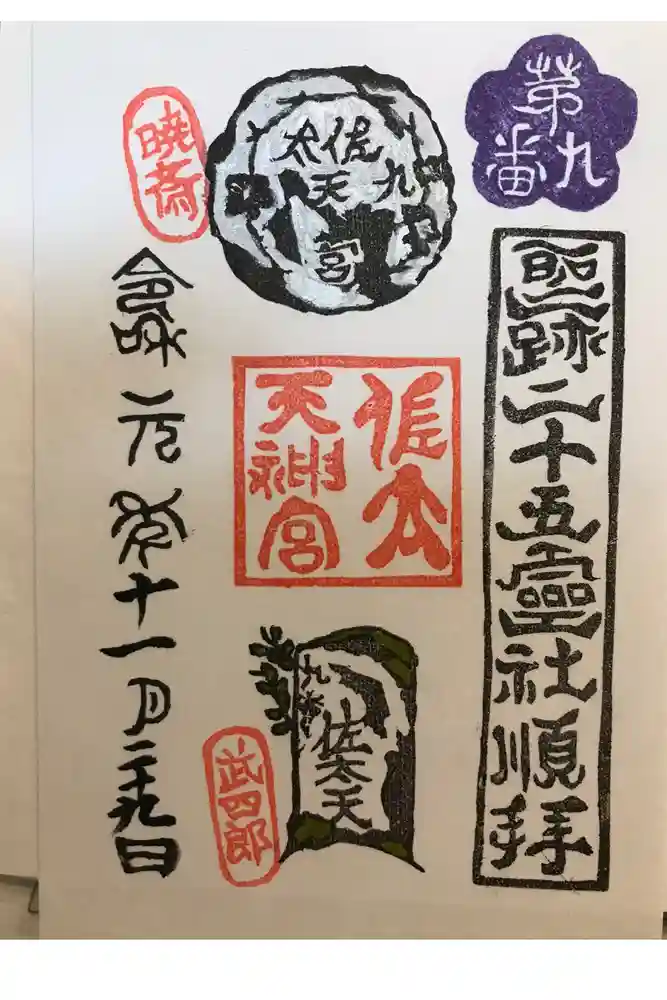 第九番
聖跡二十五霊社順拝
九
佐太
天宮
佐太
天神宮
九番
佐太天
暁斎
令和元年十一月二十九日
武四郎